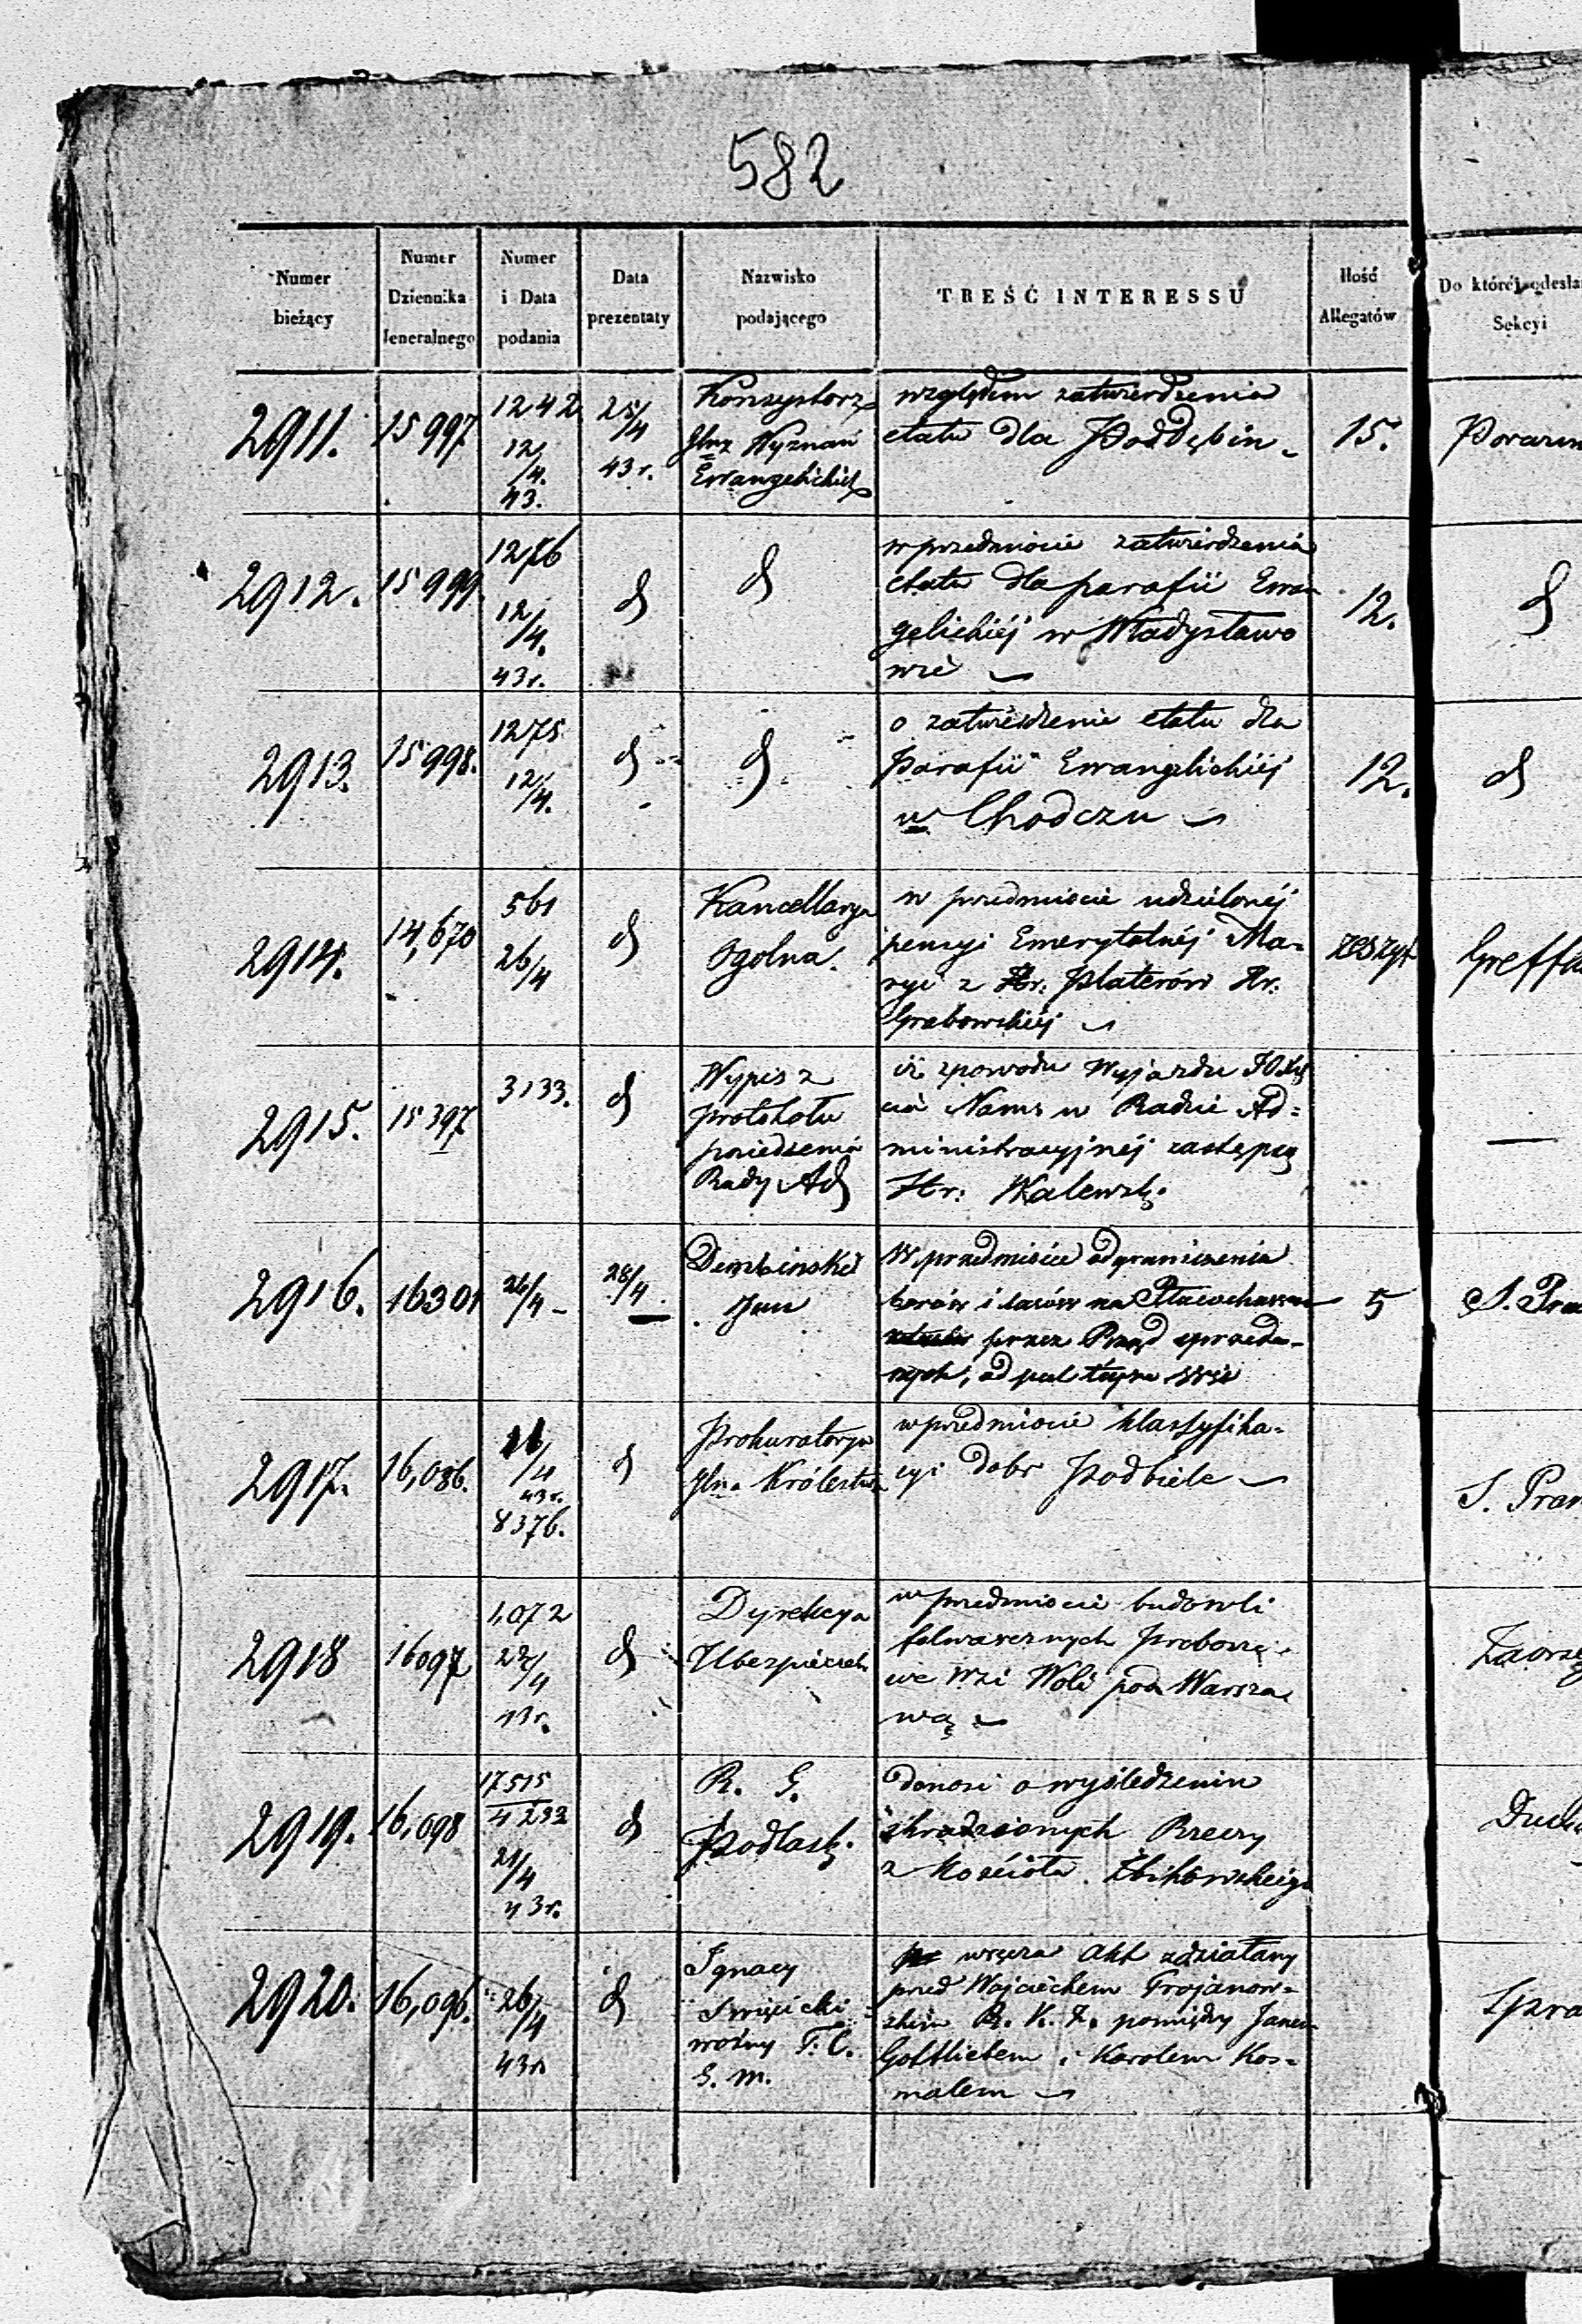 582
Numer bieżący
Numer Dziennika Jeneralnego
Numer i Data podania
Data prezentaty
Nazwisko podającego
TREŚĆ INTERESSU
Ilość Allegatów
Do której odesła
Sekcyi
2911. 15997 1242 12/4. 43. 25/4 43 r.
Konsystorz
Jlny Wyznań
Ewangelickich
względem zatwierdzenia
etatu dla Poddębin
15.
2912. 15999 1276 12/4. 43 r.
w przedmiocie zatwierdzenia
etatu dla parafii Ewan
gelickiéj w Władysławo
wie
12.
2913. 15998. 1275 12/4.
o zatwierdzenie etatu dla
Parafii Ewangelickiéj
w Chodczu
12.
2914. 14,670 561 26/4
Kancellarya
Ogolna.
w przedmiocie udzielonéj
pensyi Emerytalnéj Ma=
ryi z Hr: Platerów Hr:
Grabowskiéj
zeszyt
2915. 15397 3133.
Wypis z
protokołu
posiedzenia
Rady Ad
iż zpowodu Wyjazdu JO
cia Nams w Radzie Ad=
ministracyjnéj zastępcą
Hr: Walewski
2916. 16301 26/4 28/4
Dembinski
Jan
w przedmiocie odgraniczenia
borów i lasów na
przez Rząd sprzeda=
nych, od pul téjże wsi
5
2917. 16,086. 16/4 43 r. 8376.
Prokuratorya
Jlna Królestwa
w przedmiocie klassyfika=
cyi dobr Podbiele
2918 16097 1,072 22/4 43 r.
Dyrekcya
Ubezpieczeń
w przedmiocie budowli
folwarcznych
we Wsi Woli pod Warsza
wą
2919. 16,098 17515 4233 21/4 43 r.
R. G.
Podlaski
donosi o wyśledzeniu
skradzionych Rzeczy
z Kościoła Zbikowskiego
2920. 16,096. 26/4 43 r.
Ignacy
Swięcicki
woźny T. C.
G. M.
wręcza Akt zdziałany
przed Wojciechem Trojanow=
skim R. K. Z. pomiędzy Janem
Gottliebem i Karolem Kos=
malem